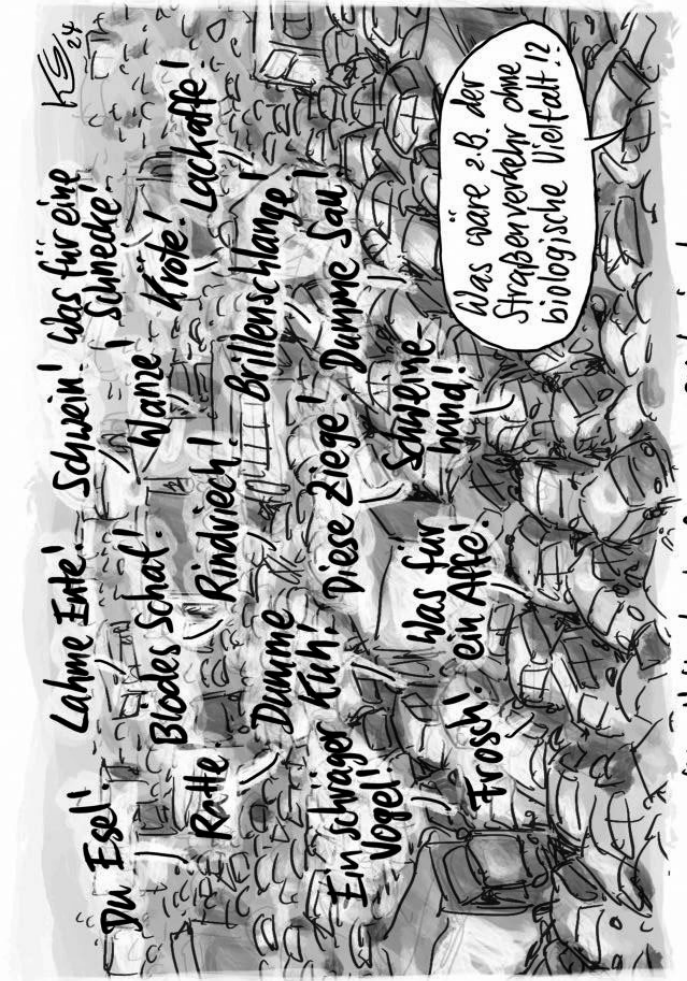 Du Esel!
Lahme Ente!
Schwein!
Was für eine
Schnecke!
KS 24
Blödes Schaf!
Wanze!
Kröte!
Lackaffe!
Ratte!
Rindviech!
Brillenschlange!
Dumme
Kuh!
Diese Ziege!
Dumme Sau!
Ein schräger
Vogel!
Was für
ein Affe!
Schweine-
hund!
Frosch!
Was wäre z.B. der
Straßenverkehr ohne
biologische Vielfalt!?